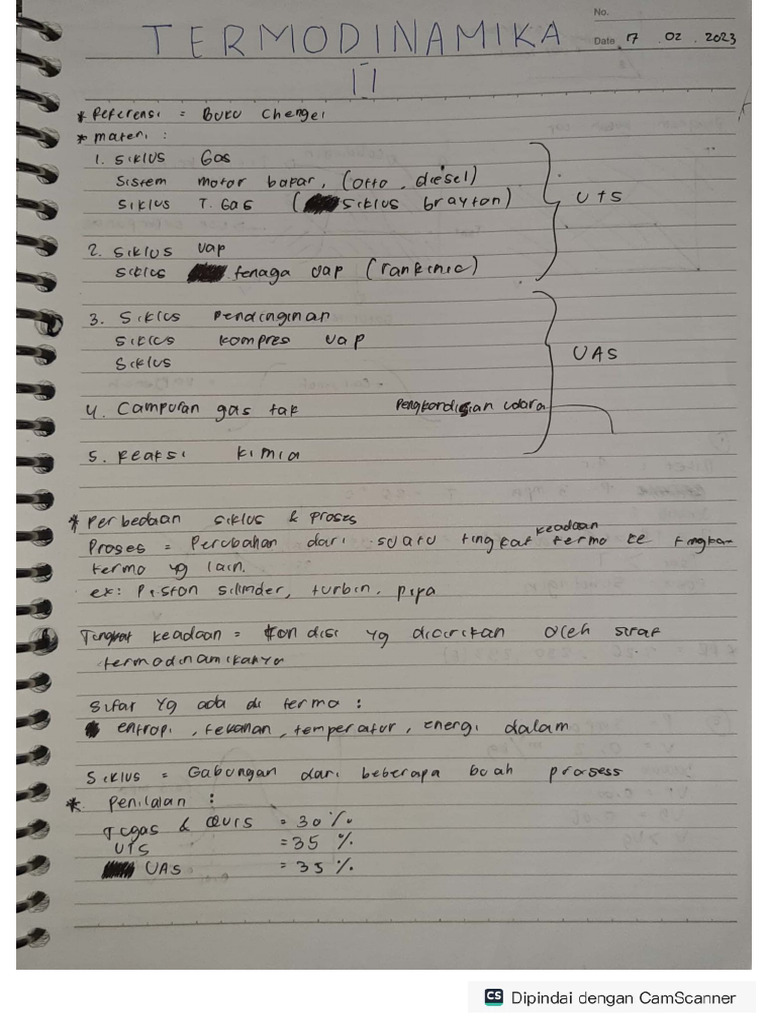 No.
TERMODINAMIKA
Date 7 . 02 . 2023
II
* Referensi = Buku Chengel
* Materi :
1. Siklus Gas
Sistem motor bakar, (otto, diesel)
Siklus T. Gas ( siklus brayton)
UTS
2. Siklus uap
Siklus tenaga uap (rankinic)
3. Siklus Pendinginan
Siklus kompres uap
Siklus
UAS
4. Campuran gas tak Pengkordisian udara
5. Reaksi kimia
* Perbedaan siklus & proses
keadaan
Proses = Perubahan dari suatu tingkat termo ke tingkat
termo yg lain.
ex: Piston silinder, turbin, pipa
Tingkat keadaan = kondisi yg dicirikan oleh sifat
termodinamikanya
Sifat yg ada di termo :
entropi, tekanan, temperatur, energi dalam
Siklus = Gabungan dari beberapa buah prosess
* Penilaian :
Tugas & QUIS = 30 %
UTS = 35 %
UAS = 35 %
CS Dipindai dengan CamScanner